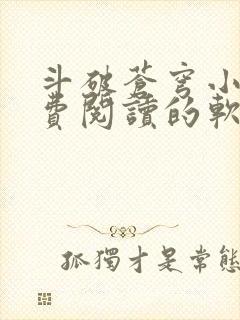 斗破蒼穹小
費閱讀的軟
孤獨才是常態